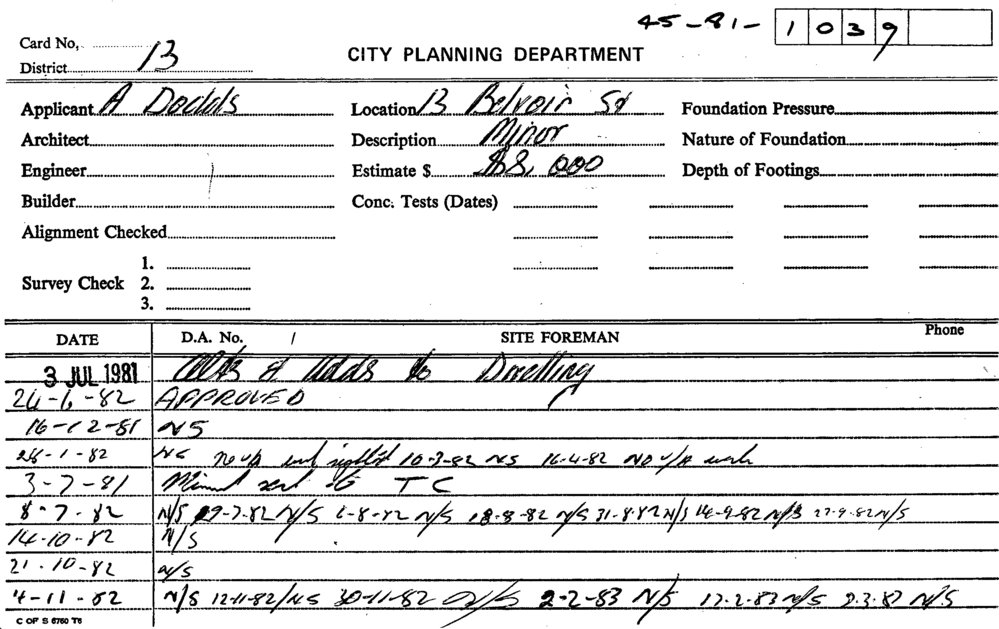 45-81- 1039
Card No,
District 13
CITY PLANNING DEPARTMENT
Applicant A Dodds Location 13 Belvoir St Foundation Pressure
Architect Description Minor Nature of Foundation
Engineer Estimate $ $8,000 Depth of Footings
Builder Conc. Tests (Dates)
Alignment Checked
Survey Check 1.
2.
3.
DATE D.A. No. / SITE FOREMAN Phone
3 JUL 1981 Alts & Adds to Dwelling
APPROVED
16-12-81 NS
28-1-82 NS no u/a work 10-3-82 NS 16-4-82 NO U/A work
3-7-81 sent to TC
8-7-82 N/S 29-7-82 N/S 6-8-82 N/S 18-8-82 N/S 31-8-82 N/S 14-9-82 N/S 27-9-82 N/S
14-10-82 N/S
21-10-82 N/S
4-11-82 N/S 12-11-82/NS 30-11-82 N/S 2-2-83 N/S 17-2-83 N/S 9.3.83 N/S
C OF S 6760 T6